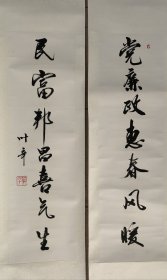 党廉政惠春风暖
民富邦昌喜气生
叶辛